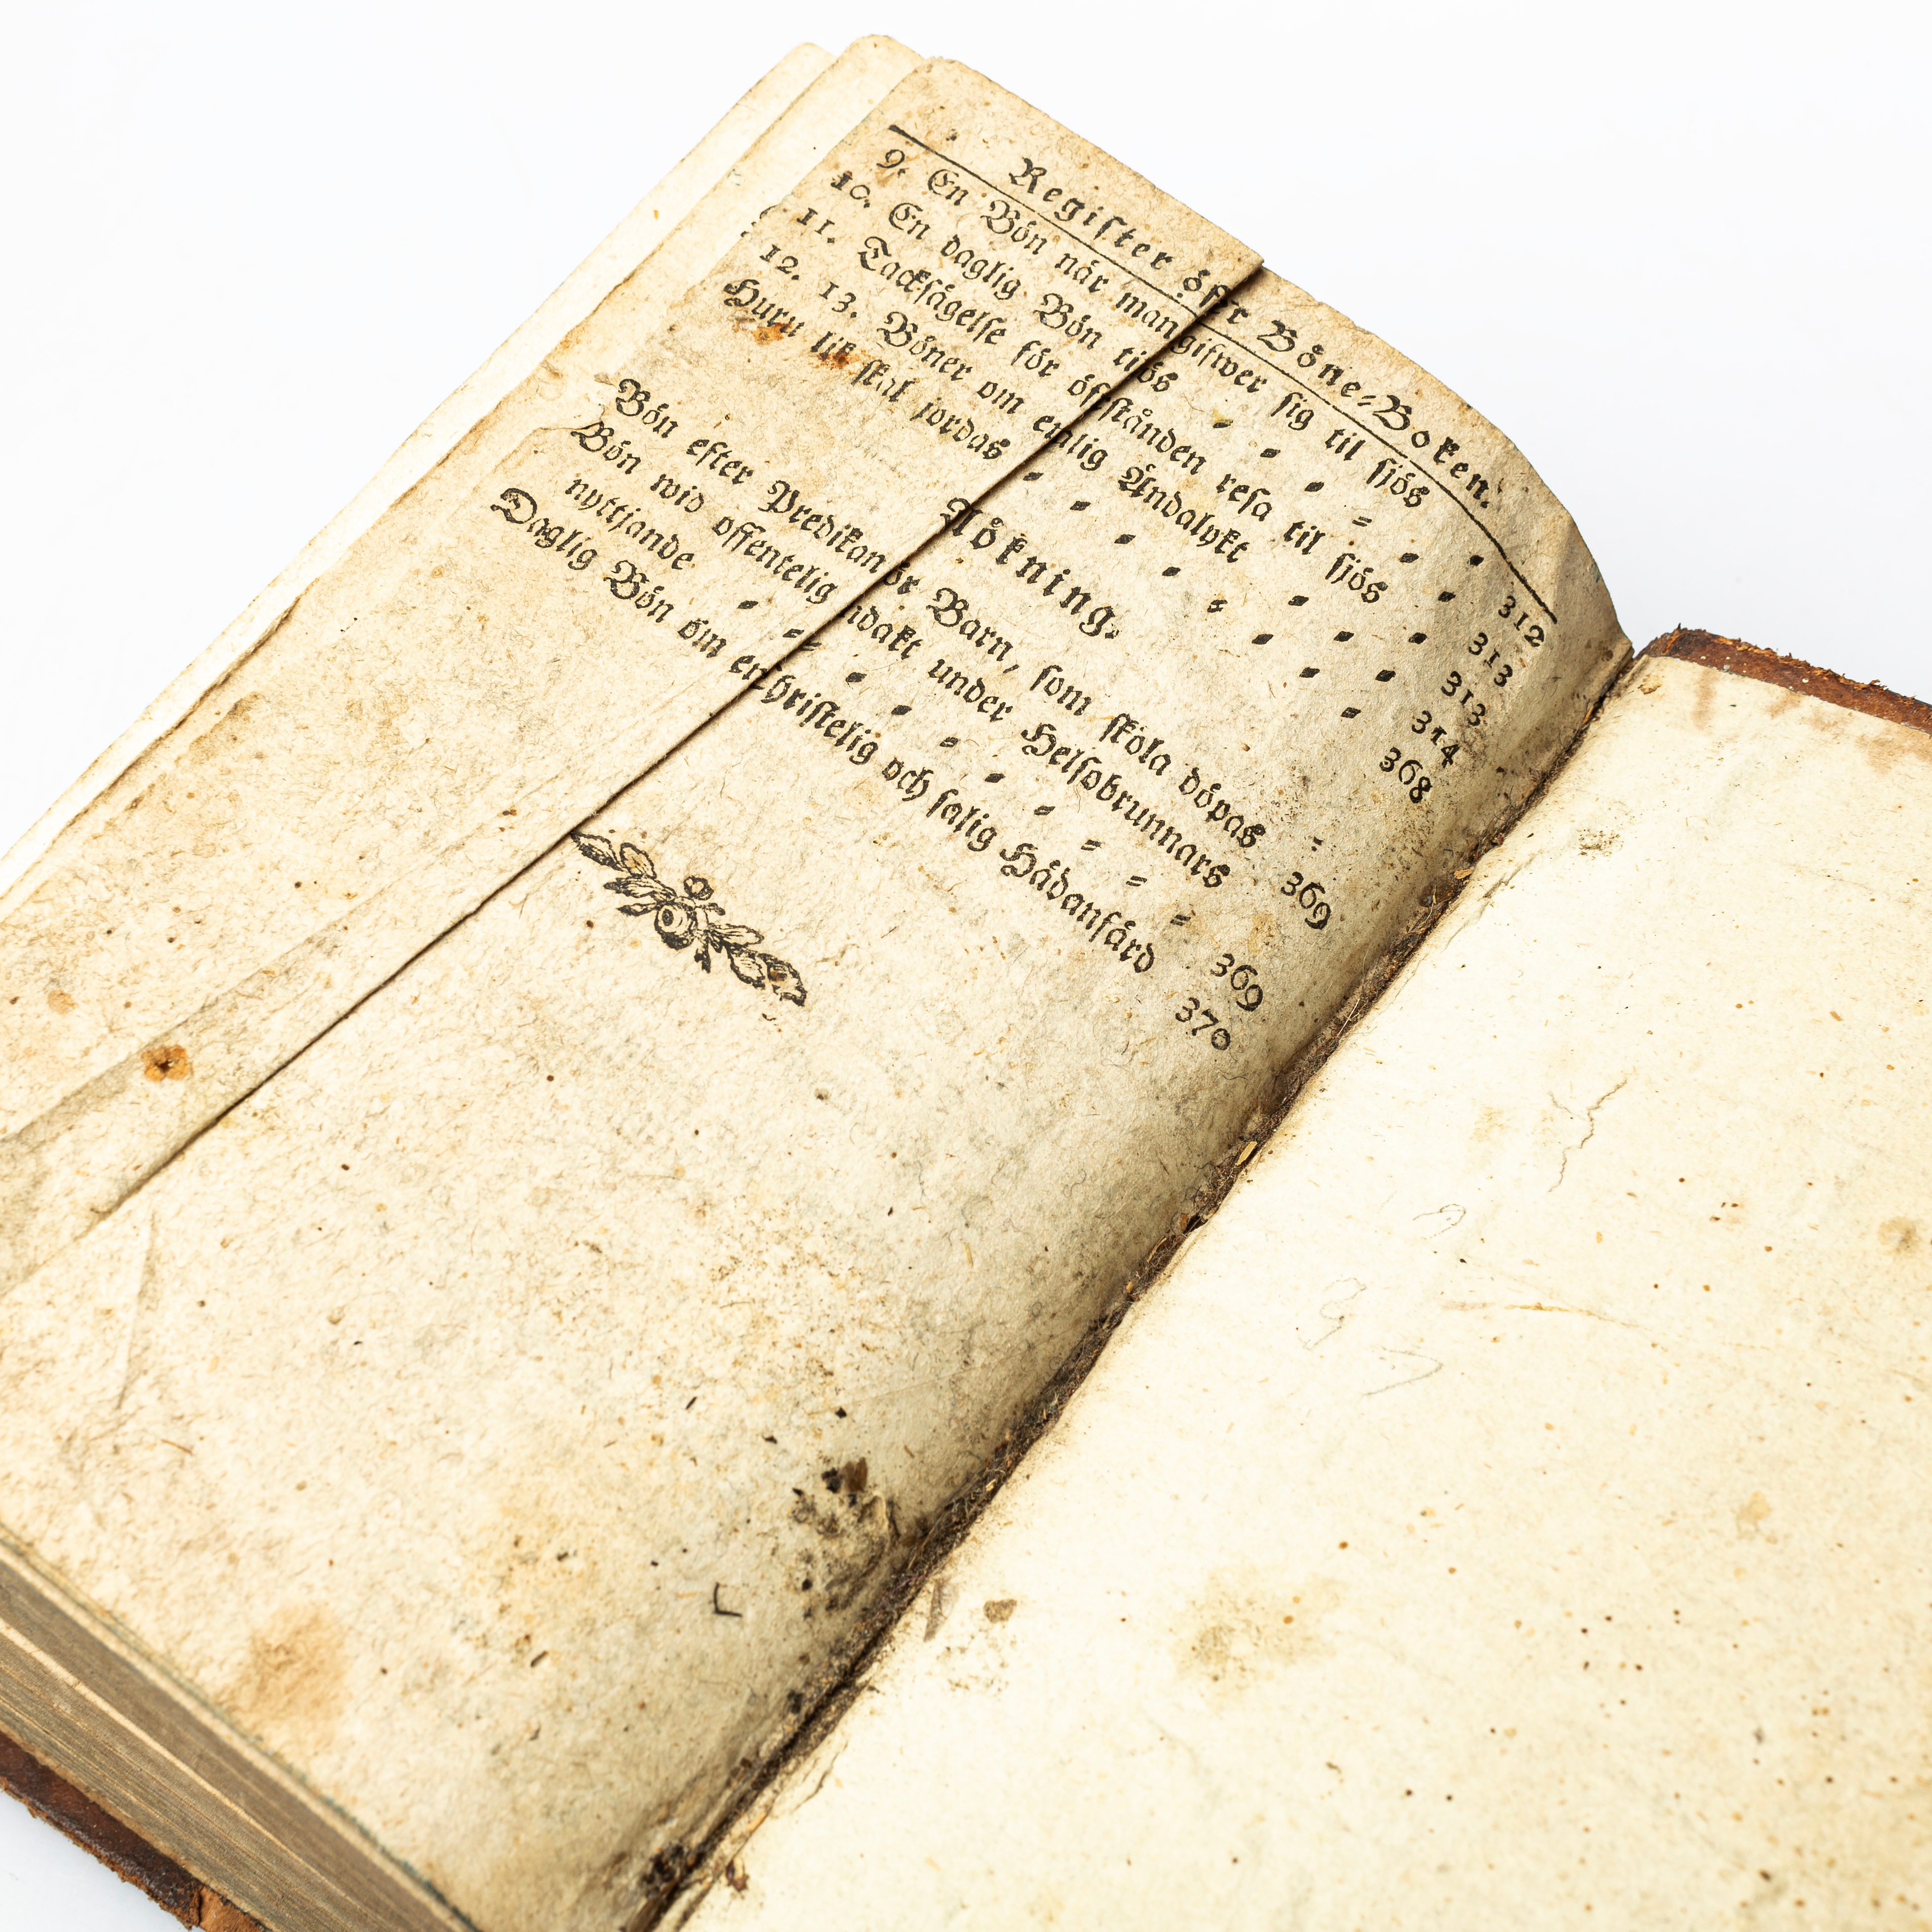 Register öfr Böne-Boken.
9. En Bön når man gifwer sig til sjös 312
10. En daglig Bön sjös 313
11. Tacksågelse för resa til sjös 313
12. 13. Böner om Åndalykt 314
Huru lik skal jordas 368
Bön efter Predikan Barn, som skola döpas 369
Bön wid offentelig under Helsobrunnars
nyttjande 369
Daglig Bön om en christelig och salig Hådanfård 370